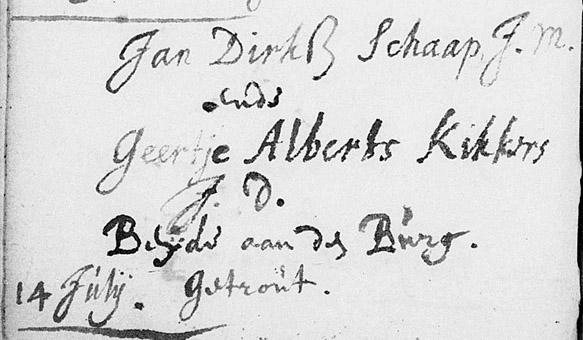 Jan Dirkß Schaap, J. M.
ende
Geertje Alberts Kikkers
J. D.
Beÿde aan den Burg.
14 Julÿ. Getrout.